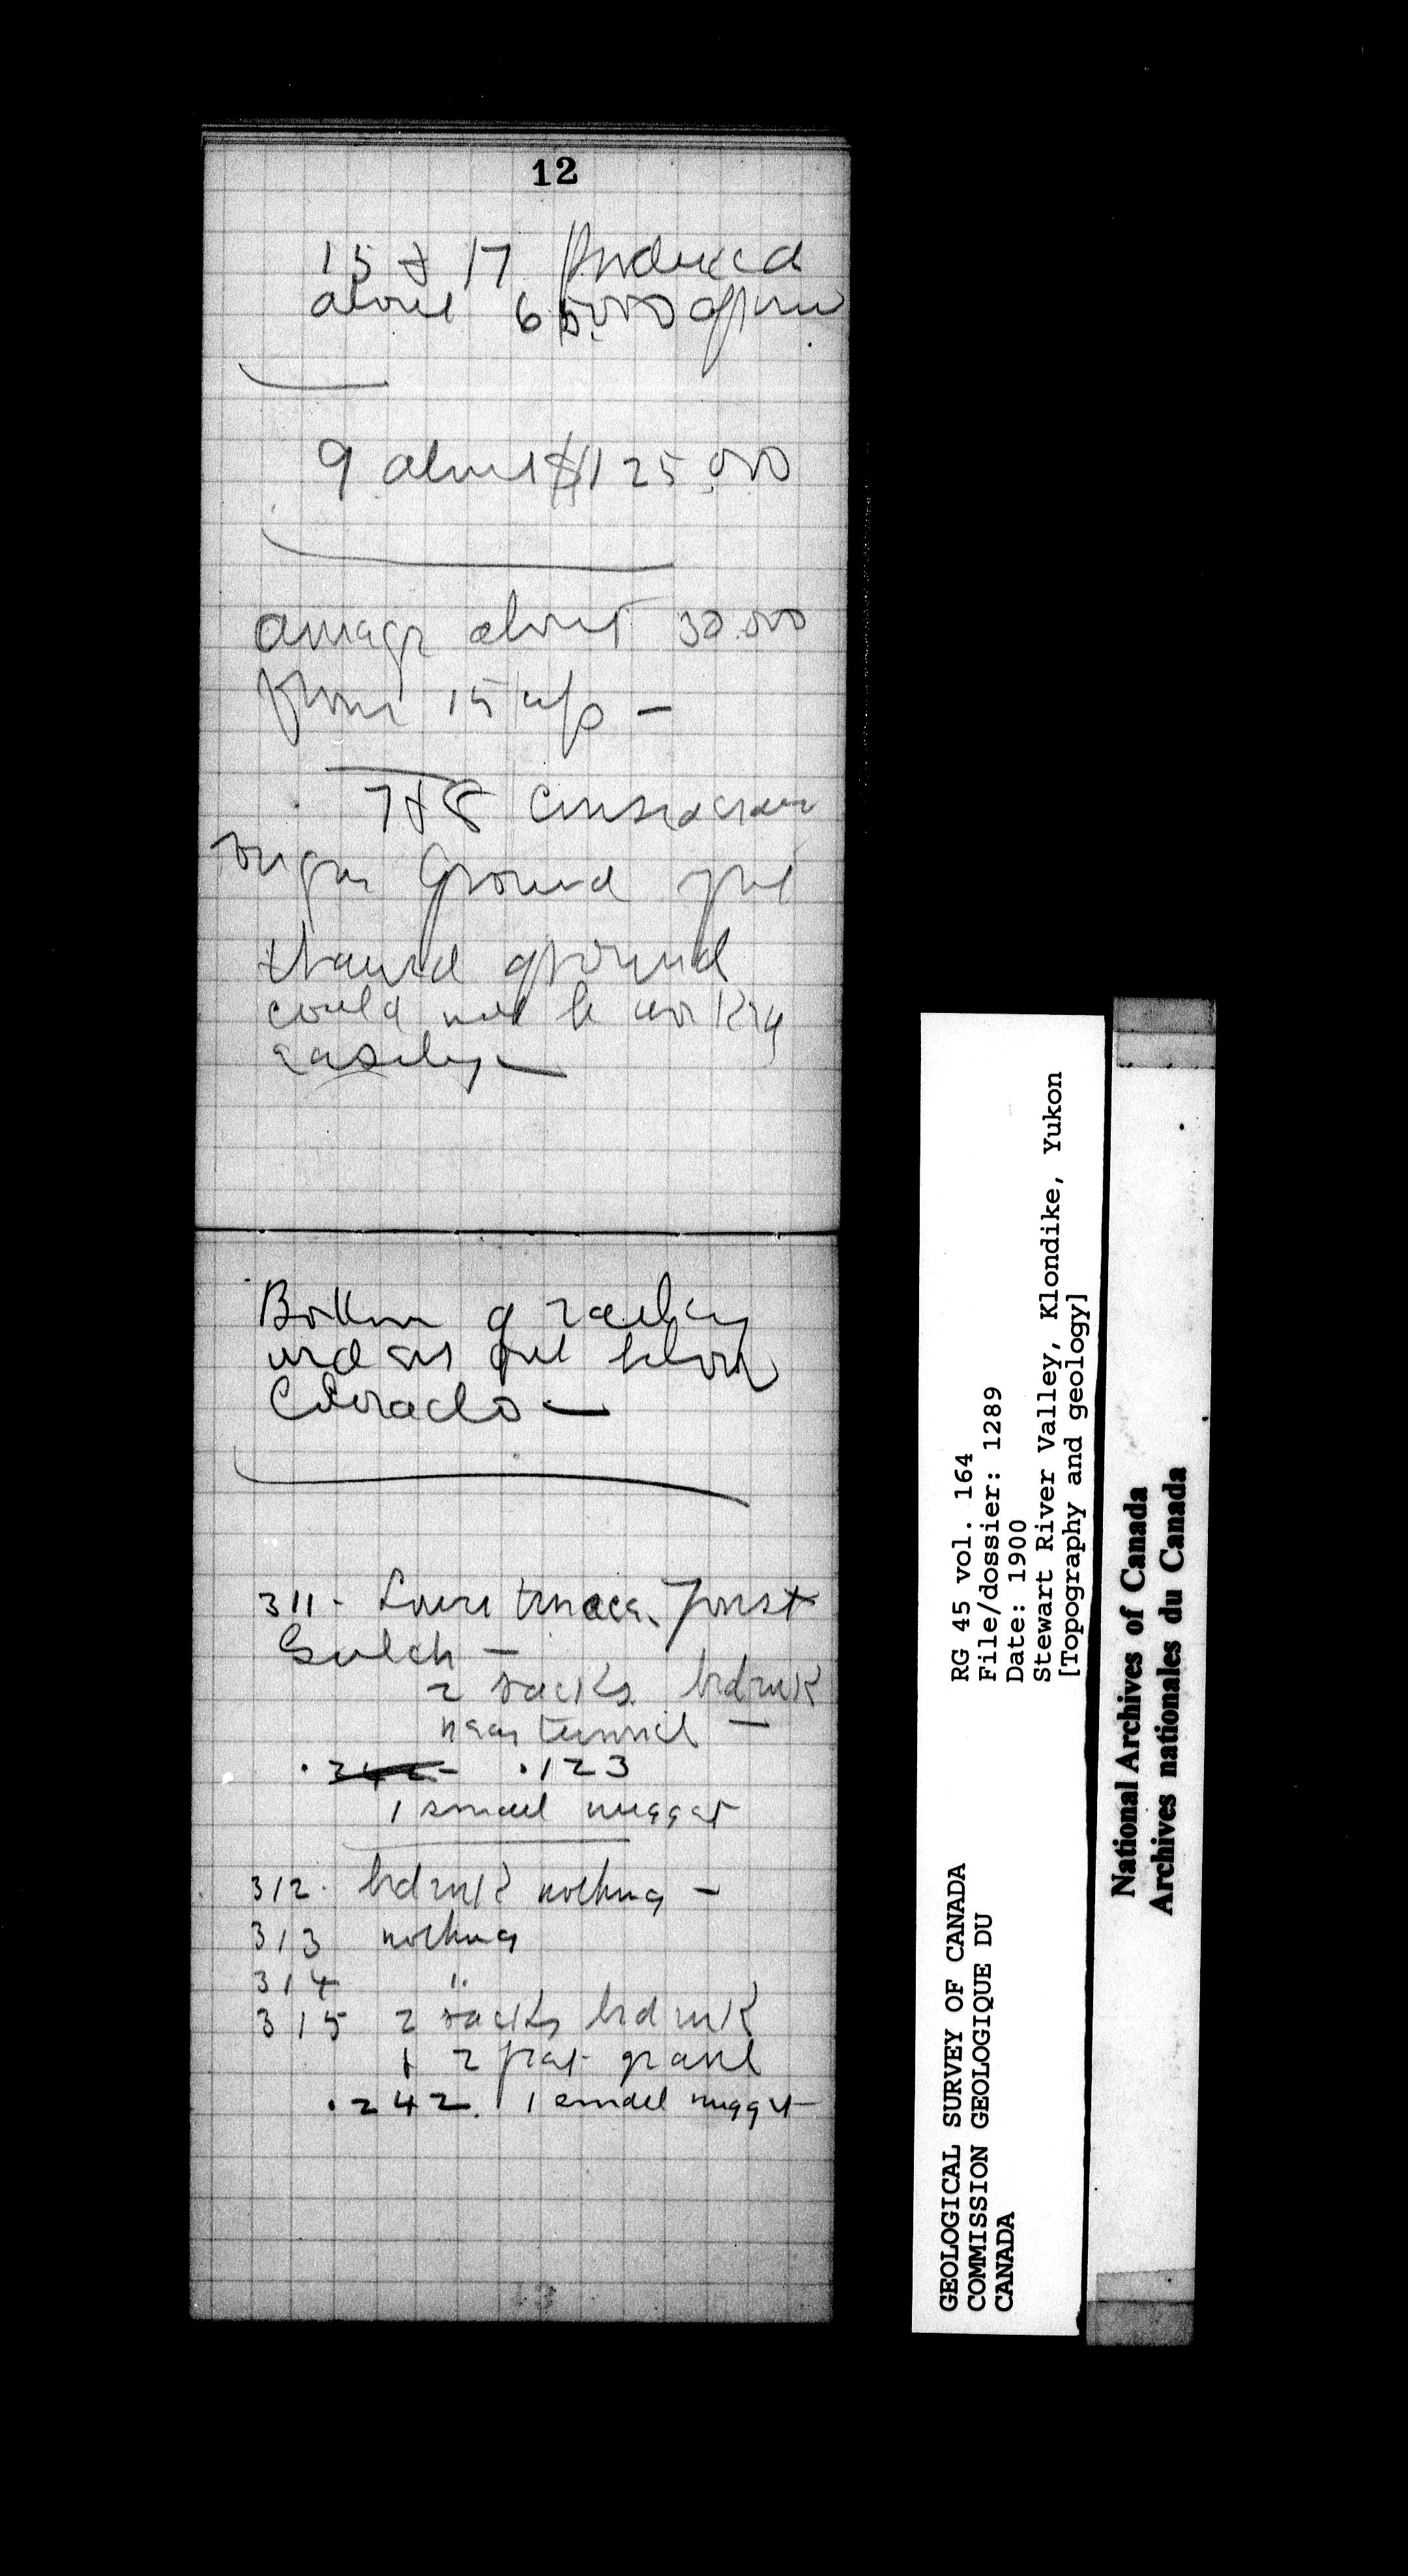 12
15 & 17 Produced
about 65,000 apiece
9 about $125,000
average about 30.000
from 15 up —
7 & 8 considerable
ground
thawed ground
could not be
easily —
Bottom of valley
just below
Colorado —
311 - Lower terrace. Forest
Gulch —
2 sacks bdrock
near tunnel —
.242 .123
1 small nugget
312. bdrock nothing —
313 nothing
314 "
315 2 sacks bdrock
+ 2 feet gravel
.242. 1 small nugget
13
RG 45 vol. 164
File/dossier: 1289
Date: 1900
Stewart River Valley, Klondike, Yukon
[Topography and geology]
GEOLOGICAL SURVEY OF CANADA
COMMISSION GEOLOGIQUE DU
CANADA
National Archives of Canada
Archives nationales du Canada